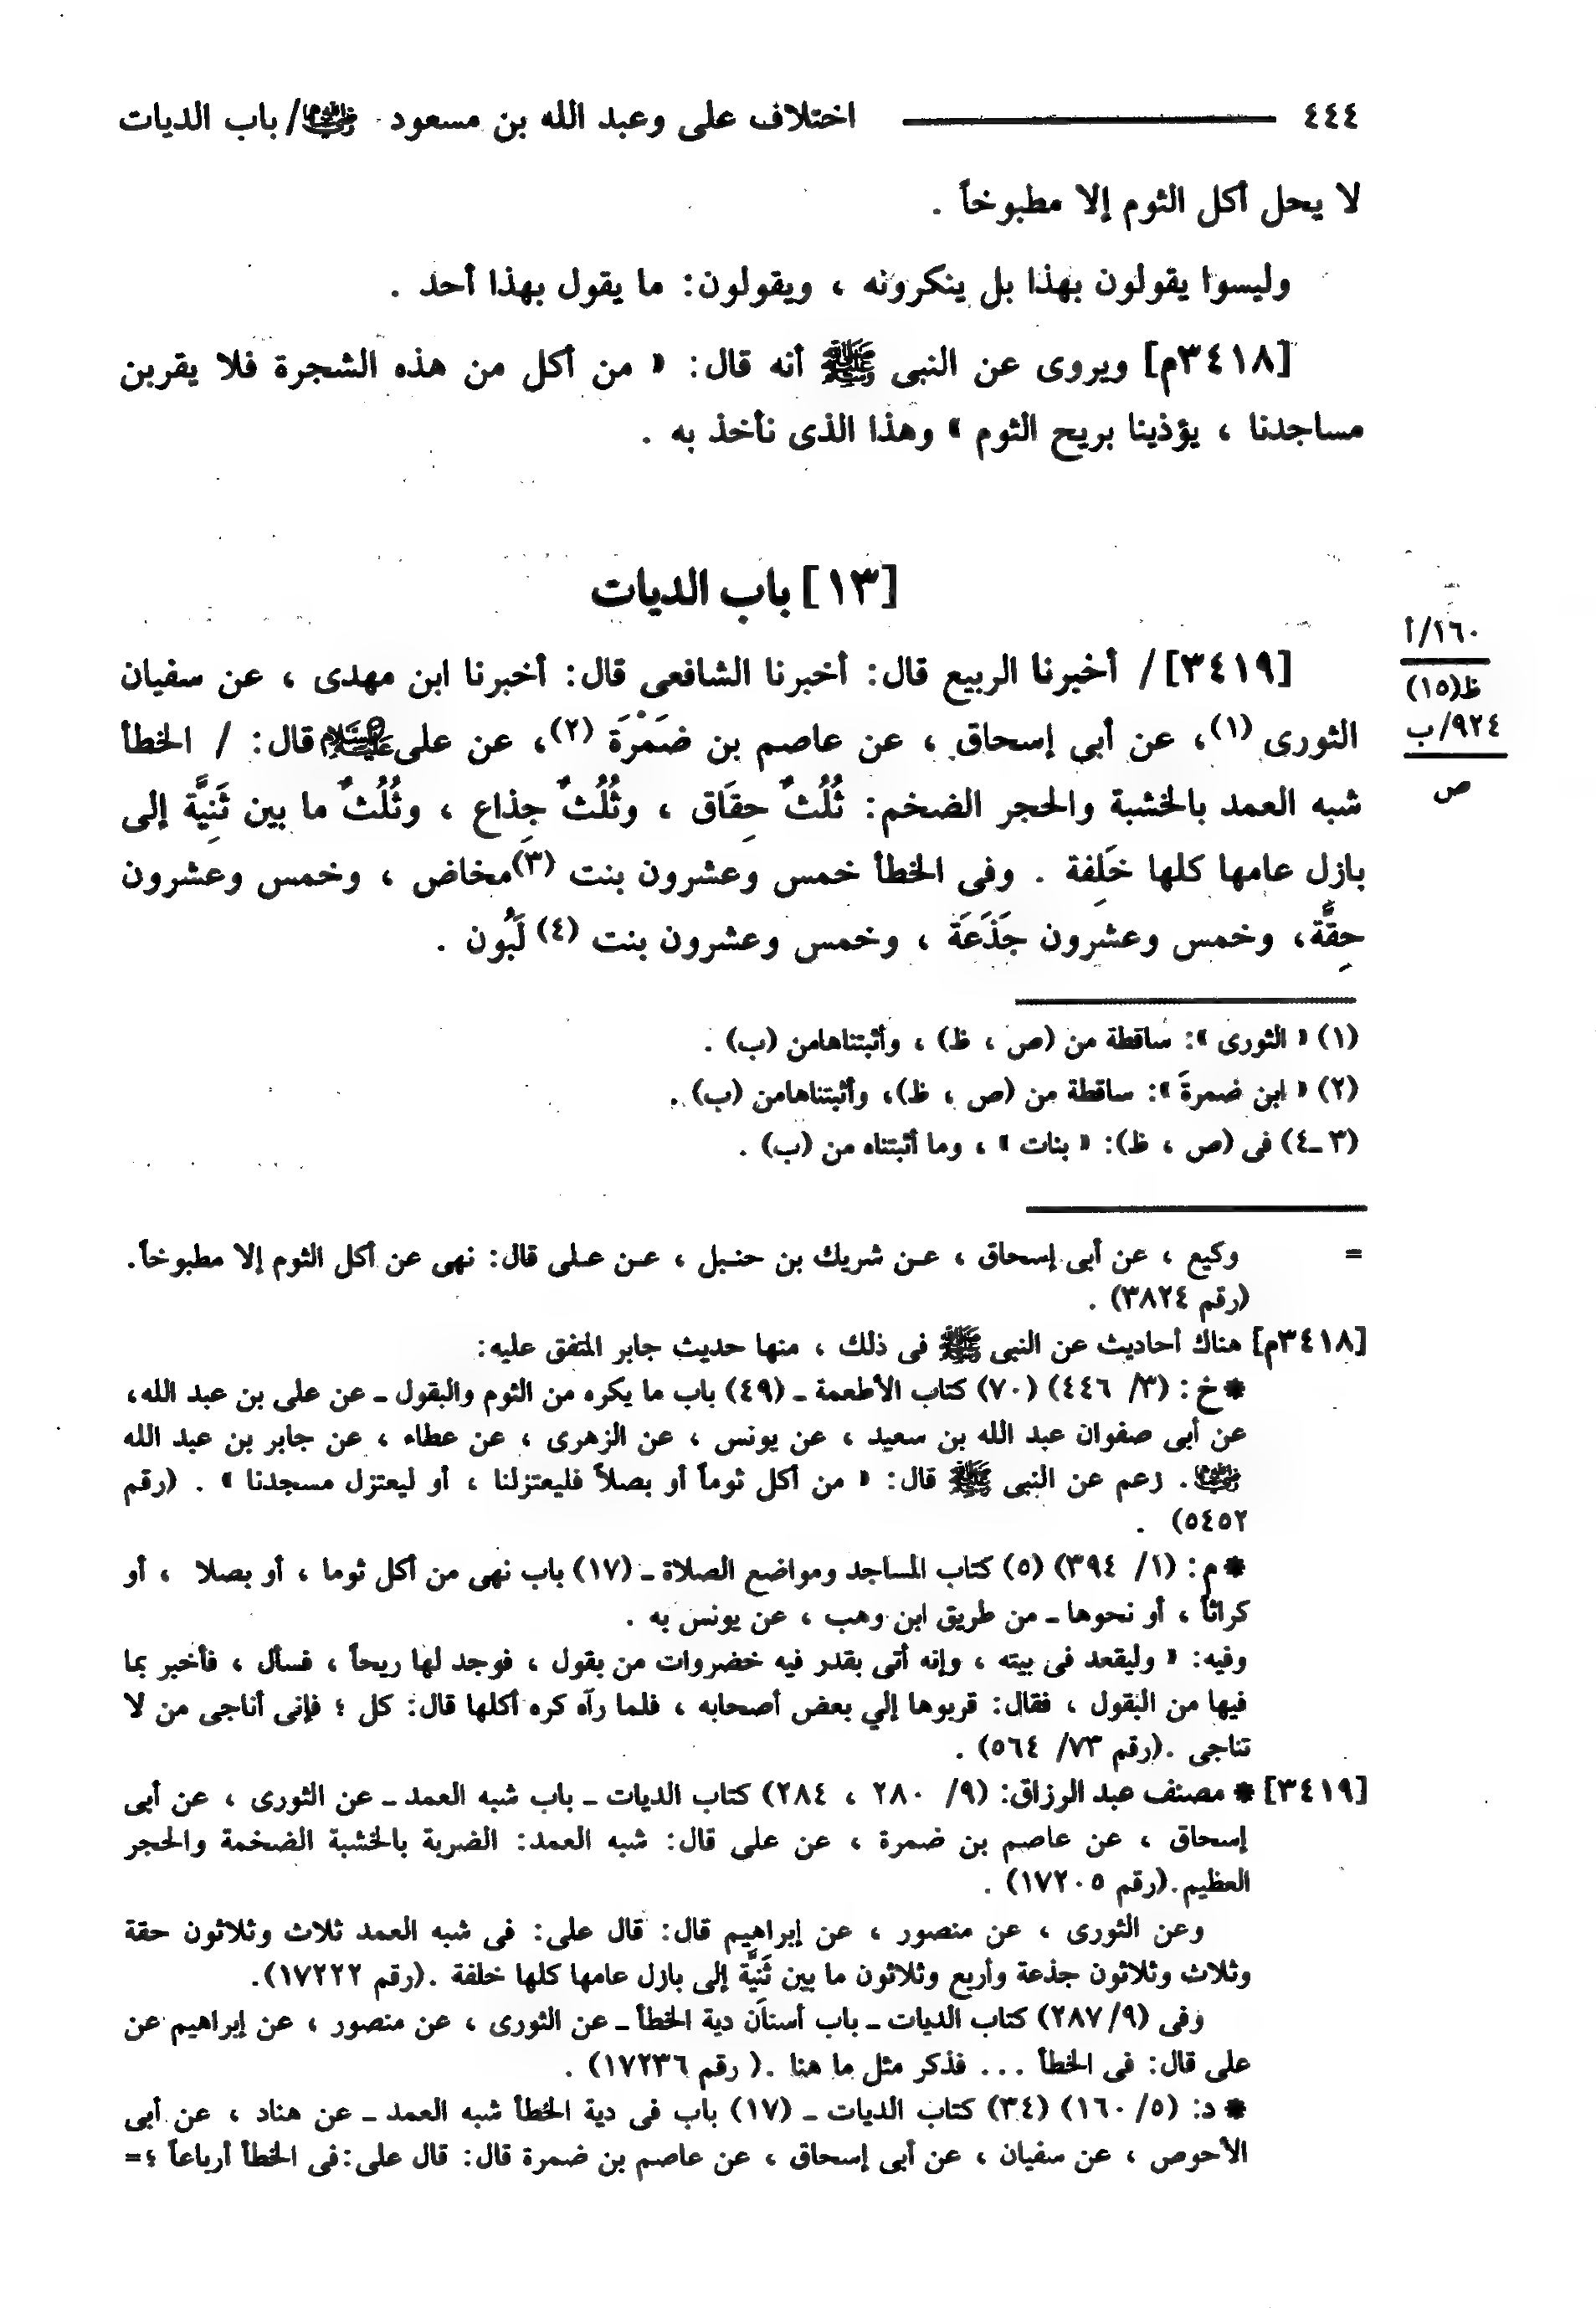 ٤٤٤ اختلاف على وعبد الله بن مسعود رضي الله عنهما / باب الديات
لا يحل أكل الثوم إلا مطبوخاً .
وليسوا يقولون بهذا بل ينكرونه ، ويقولون: ما يقول بهذا أحد .
[٣٤١٨م] ويروى عن النبى ﷺ أنه قال: « من أكل من هذه الشجرة فلا يقربن
مساجدنا ، يؤذينا بريح الثوم » وهذا الذى نأخذ به .
[١٣] باب الديات
١٦٠/أ
ظ(١٥)
٩٢٤/ب
ص
[٣٤١٩]/ أخبرنا الربيع قال: أخبرنا الشافعى قال: أخبرنا ابن مهدى ، عن سفيان
الثورى (١)، عن أبى إسحاق ، عن عاصم بن ضَمْرَة (٢)، عن على عليه السلام قال: / الخطأ
شبه العمد بالخشبة والحجر الضخم: ثُلُثٌ حِقَاق ، وثُلُثٌ جِذاع ، وثُلُثٌ ما بين ثَنِيَّة إلى
بازل عامها كلها خَلِفة . وفى الخطأ خمس وعشرون بنت (٣)مخاض ، وخمس وعشرون
حِقَّة، وخمس وعشرون جَذَعَة ، وخمس وعشرون بنت (٤) لَبُون .
(١) « الثورى »: ساقطة من (ص ، ظ) ، وأثبتناهامن (ب) .
(٢) « ابن ضمرةَ »: ساقطة من (ص ، ظ)، وأثبتناهامن (ب) .
(٣ـ٤) فى (ص ، ظ): « بنات » ، وما أثبتناه من (ب) .
= وكيع ، عن أبى إسحاق ، عـن شريك بن حنـبل ، عـن عـلى قال: نهى عن أكل الثوم إلا مطبوخاً.
(رقم ٣٨٢٤) .
[٣٤١٨م] هناك أحاديث عن النبى ﷺ فى ذلك ، منها حديث جابر المتفق عليه:
* خ : (٣/ ٤٤٦) (٧٠) كتاب الأطعمة ـ (٤٩) باب ما يكره من الثوم والبقول ـ عن على بن عبد الله،
عن أبى صفوان عبد الله بن سعيد ، عن يونس ، عن الزهرى ، عن عطاء ، عن جابر بن عبد الله
رضي الله عنهما. زعم عن النبى ﷺ قال: « من أكل ثوماً أو بصلاً فليعتزلنا ، أو ليعتزل مسجدنا » . (رقم
٥٤٥٢) .
* م : (١/ ٣٩٤) (٥) كتاب المساجد ومواضع الصلاة ـ (١٧) باب نهى من أكل ثوما ، أو بصلا ، أو
كراثاً ، أو نحوها ـ من طريق ابن وهب ، عن يونس به .
وفيه: « وليقعد فى بيته ، وإنه أتى بقدر فيه خضروات من بقول ، فوجد لها ريحاً ، فسأل ، فأخبر بما
فيها من البقول ، فقال: قربوها إلي بعض أصحابه ، فلما رآه كره أكلها قال: كل ؛ فإنى أناجى من لا
تناجى .(رقم ٧٣/ ٥٦٤) .
[٣٤١٩] * مصنف عبد الرزاق: (٩/ ٢٨٠ ، ٢٨٤) كتاب الديات ـ باب شبه العمد ـ عن الثورى ، عن أبى
إسحاق ، عن عاصم بن ضمرة ، عن على قال: شبه العمد: الضربة بالخشبة الضخمة والحجر
العظيم.(رقم ١٧٢٠٥) .
وعن الثورى ، عن منصور ، عن إبراهيم قال: قال على: فى شبه العمد ثلاث وثلاثون حقة
وثلاث وثلاثون جذعة وأربع وثلاثون ما بين ثَنِيَّة إلى بازل عامها كلها خلفة .(رقم ١٧٢٢٢).
وفى (٢٨٧/٩) كتاب الديات ـ باب أسنان دية الخطأ ـ عن الثورى ، عن منصور ، عن إبراهيم عن
على قال: فى الخطأ ... فذكر مثل ما هنا .( رقم ١٧٢٣٦) .
* د: (٥/ ١٦٠) (٣٤) كتاب الديات ـ (١٧) باب فى دية الخطأ شبه العمد ـ عن هناد ، عن أبى
الأحوص ، عن سفيان ، عن أبى إسحاق ، عن عاصم بن ضمرة قال: قال على:فى الخطأ أرباعاً ؛=